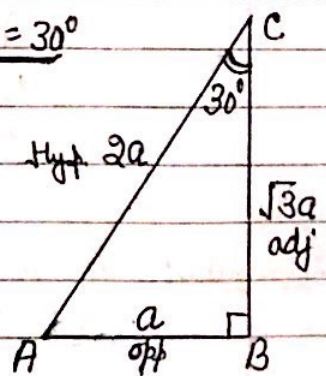 = 30°
C
30°
Hyp. 2a
√3a
adj
a
A
opp
B